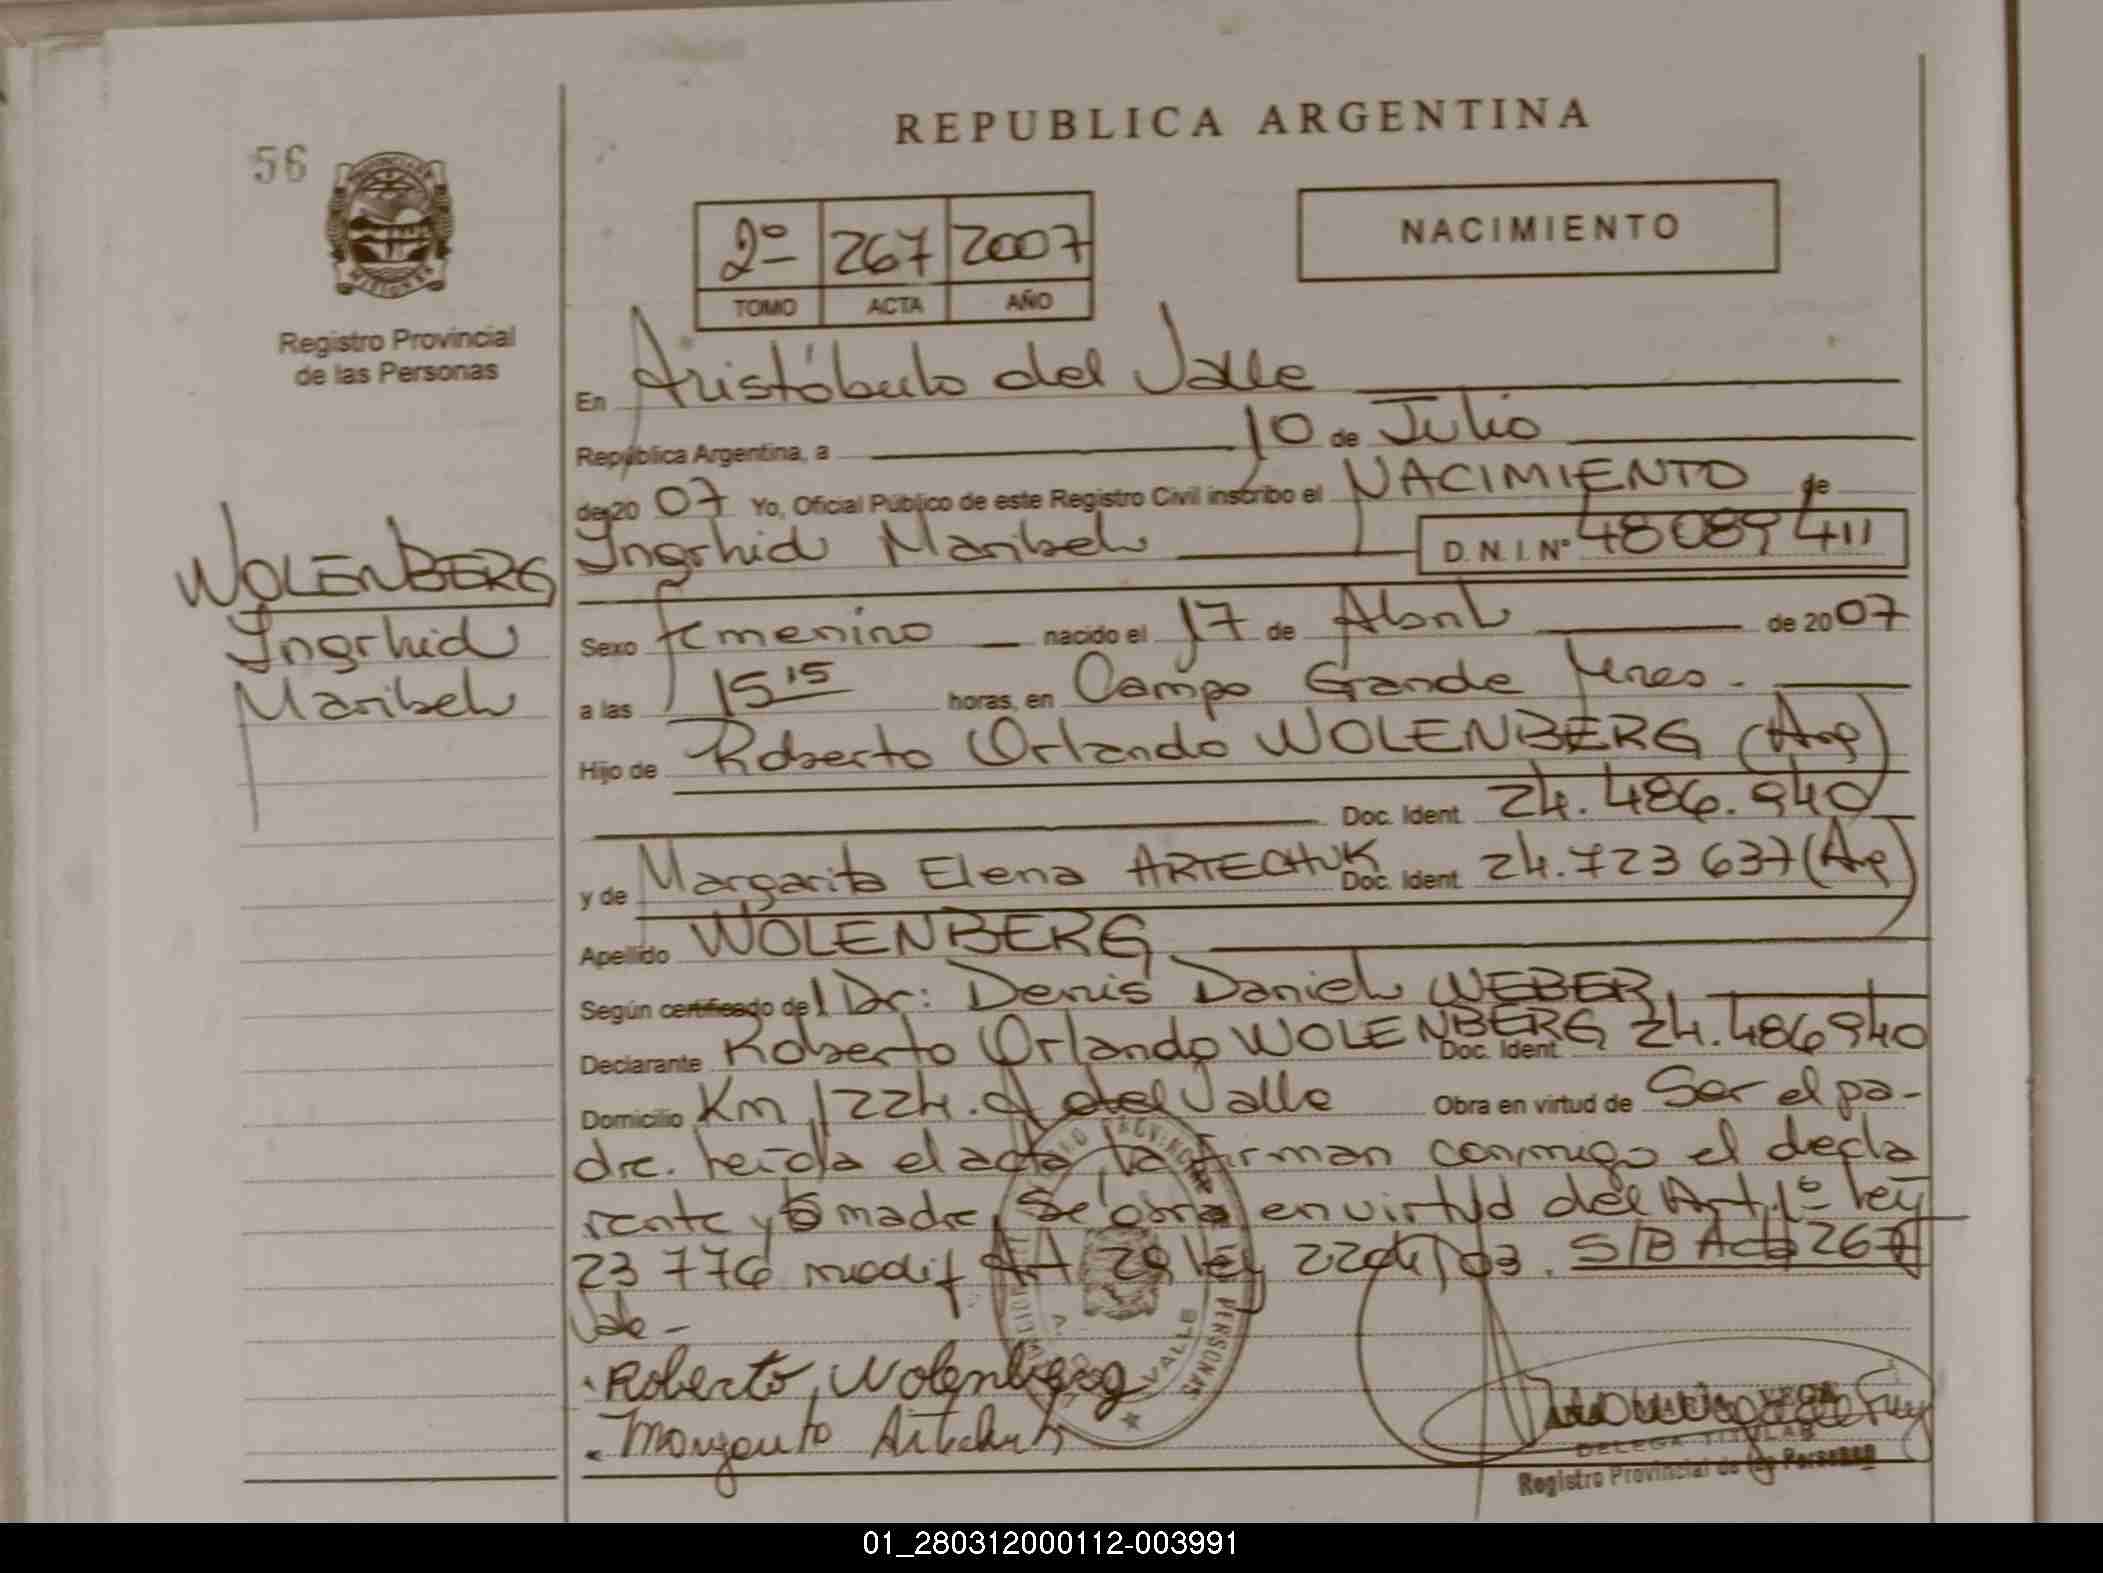 REPUBLICA ARGENTINA
56
NACIMIENTO
2º 267 2007
TOMO ACTA AÑO
MISIONES
Registro Provincial
de las Personas
En Aristóbulo del Valle
República Argentina, a 10 de Julio
de 20 07 Yo, Oficial Público de este Registro Civil inscribo el NACIMIENTO de
Ingrhid Maribel D. N. I. Nº 48089411
WOLENBERG
Ingrhid
Maribel
Sexo femenino nacido el 17 de Abril de 20 07
a las 15 15 horas, en Campo Grande Mnes.
Hijo de Roberto Orlando WOLENBERG (Arg)
Doc. Ident. 24.486.940
y de Margarita Elena ARTECHUK Doc. Ident. 24.723 637 (Arg)
Apellido WOLENBERG
Según certificado del Dr: Denis Daniel WEBER
Declarante Roberto Orlando WOLENBERG Doc. Ident. 24.486940
Domicilio Km 1224. A del Valle Obra en virtud de Ser el pa-
dre. Leída el acta la firman conmigo el decla
rante y madre, Se obra en virtud del Art. 1º Ley
23 776 modif Art 29 Ley S/B Acta 267
Vale -
Roberto, Wolenberg
VALLE
PERSONAS
DELEGA TITULAR
Registro Provincial de las Personas
01_280312000112-003991